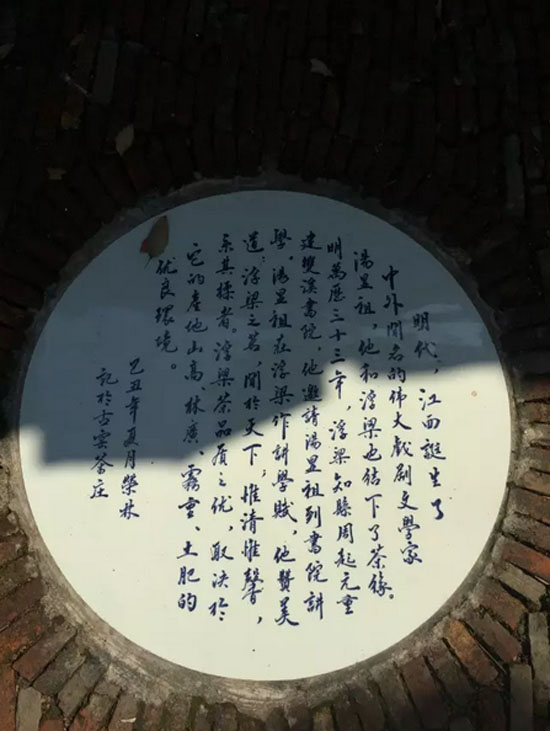 明代，江西誕生了
中外闻名的伟大戲剧文學家
湯显祖，他和浮梁也结下了茶缘。
明萬历三十三年，浮梁知縣周起元重
建雙溪書院，他邀請湯显祖到書院講
學。湯显祖在浮梁作講學賦，他贊美
道：浮梁之茗，闻於天下，惟清惟馨，
系其揉者。浮梁茶品质之优，取决於
它的産地山高、林廣、霧重、土肥的
优良環境。
己丑年夏月榮林
記於古雲茶庄